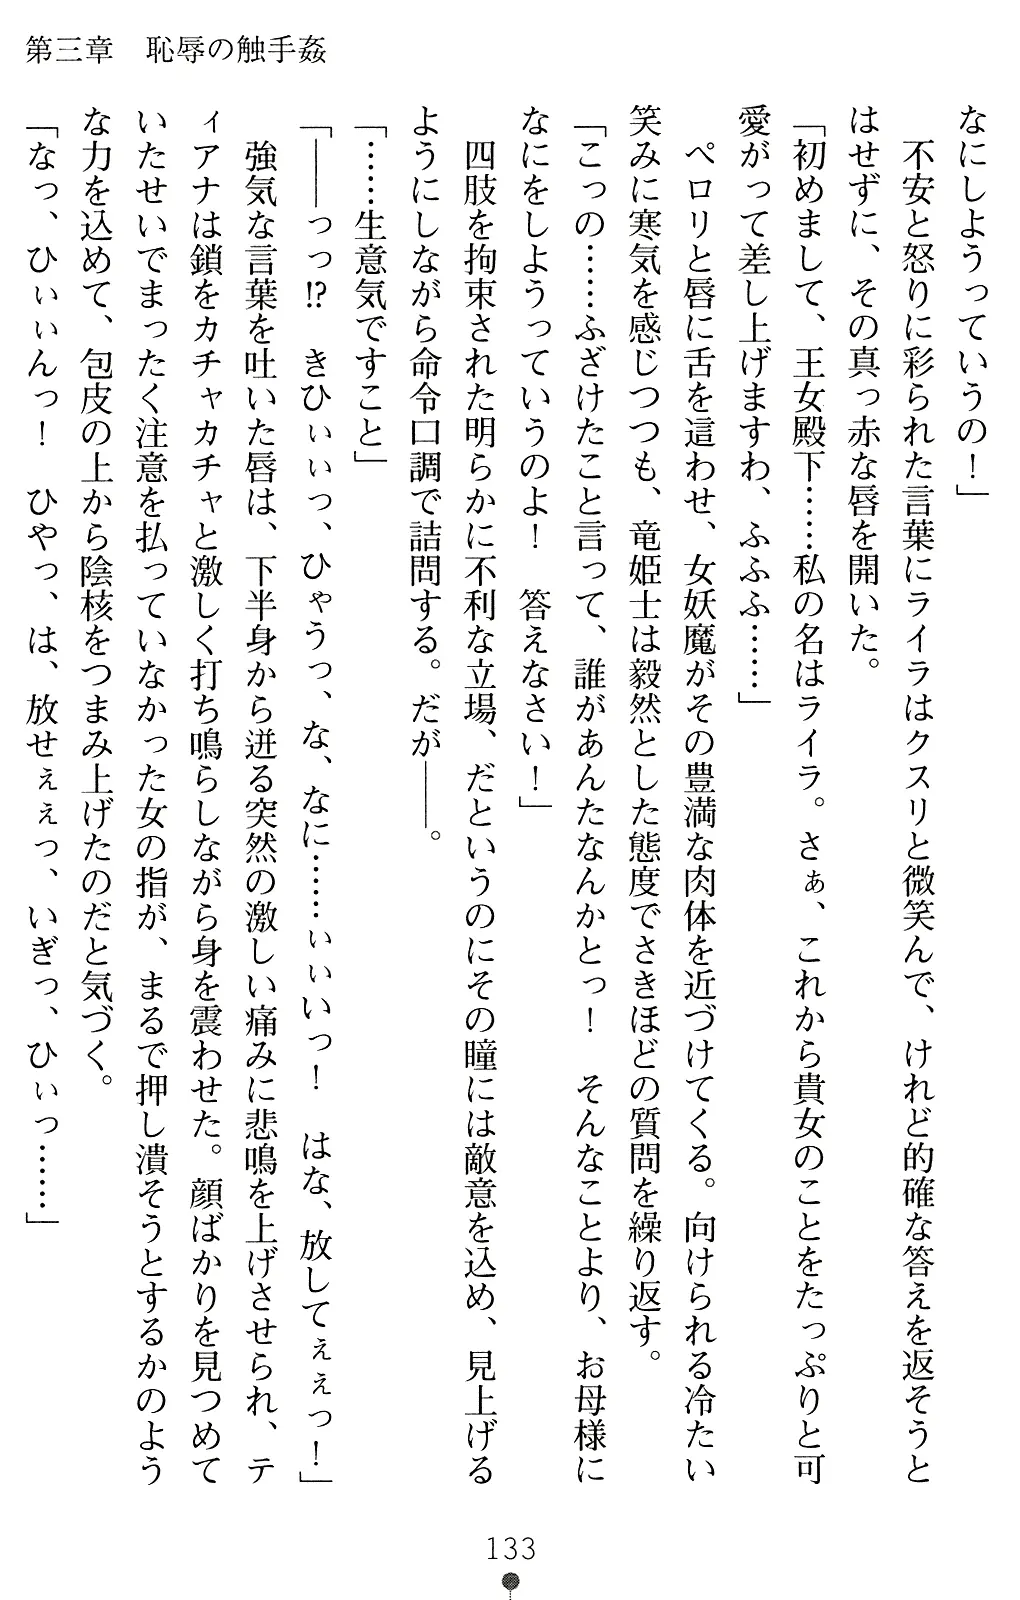 第三章　恥辱の触手姦
なにしようっていうの！」
　不安と怒りに彩られた言葉にライラはクスリと微笑んで、けれど的確な答えを返そうと
はせずに、その真っ赤な唇を開いた。
「初めまして、王女殿下……私の名はライラ。さぁ、これから貴女のことをたっぷりと可
愛がって差し上げますわ、ふふふ……」
　ペロリと唇に舌を這わせ、女妖魔がその豊満な肉体を近づけてくる。向けられる冷たい
笑みに寒気を感じつつも、竜姫士は毅然とした態度でさきほどの質問を繰り返す。
「こっの……ふざけたこと言って、誰があんたなんかとっ！　そんなことより、お母様に
なにをしようっていうのよ！　答えなさい！」
　四肢を拘束された明らかに不利な立場、だというのにその瞳には敵意を込め、見上げる
ようにしながら命令口調で詰問する。だが――。
「……生意気ですこと」
「――っっ!?　きひぃぃっ、ひゃうっ、な、なに……ぃぃいっ！　はな、放してぇぇっ！」
　強気な言葉を吐いた唇は、下半身から迸る突然の激しい痛みに悲鳴を上げさせられ、テ
ィアナは鎖をカチャカチャと激しく打ち鳴らしながら身を震わせた。顔ばかりを見つめて
いたせいでまったく注意を払っていなかった女の指が、まるで押し潰そうとするかのよう
な力を込めて、包皮の上から陰核をつまみ上げたのだと気づく。
「なっ、ひぃぃんっ！　ひやっ、は、放せぇぇっ、いぎっ、ひぃっ……」
133